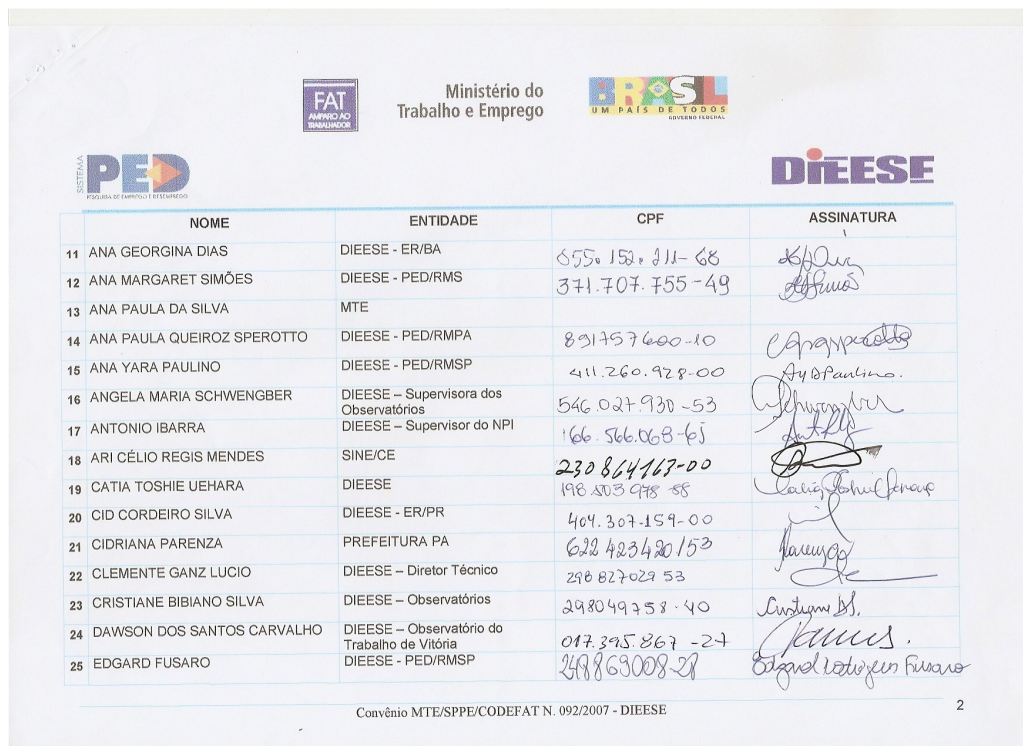 FAT
AMPARO AO
TRABALHADOR
Ministério do
Trabalho e Emprego
BRASIL
UM PAÍS DE TODOS
GOVERNO FEDERAL
SISTEMA
PED
PESQUISA DE EMPREGO E DESEMPREGO
DIEESE
NOME ENTIDADE CPF ASSINATURA
11 ANA GEORGINA DIAS DIEESE - ER/BA 055.152.211-68
12 ANA MARGARET SIMÕES DIEESE - PED/RMS 371.707.755-49
13 ANA PAULA DA SILVA MTE
14 ANA PAULA QUEIROZ SPEROTTO DIEESE - PED/RMPA 891757600-10
15 ANA YARA PAULINO DIEESE - PED/RMSP 411.260.928-00 AyDPaulino.
16 ANGELA MARIA SCHWENGBER DIEESE – Supervisora dos
Observatórios 546.027.930-53
17 ANTONIO IBARRA DIEESE – Supervisor do NPI 166.566.068-65
18 ARI CÉLIO REGIS MENDES SINE/CE 230864163-00
19 CATIA TOSHIE UEHARA DIEESE 198 503 978 88
20 CID CORDEIRO SILVA DIEESE - ER/PR 404.307-159-00
21 CIDRIANA PARENZA PREFEITURA PA 622 423420/53 Parenza
22 CLEMENTE GANZ LUCIO DIEESE – Diretor Técnico 298 827029 53
23 CRISTIANE BIBIANO SILVA DIEESE – Observatórios 298049758-40 Cristiane BS.
24 DAWSON DOS SANTOS CARVALHO DIEESE – Observatório do
Trabalho de Vitória 017.395.867-27
25 EDGARD FUSARO DIEESE - PED/RMSP 248869008-28 Edgard Rodrigues Fusaro
Convênio MTE/SPPE/CODEFAT N. 092/2007 - DIEESE
2